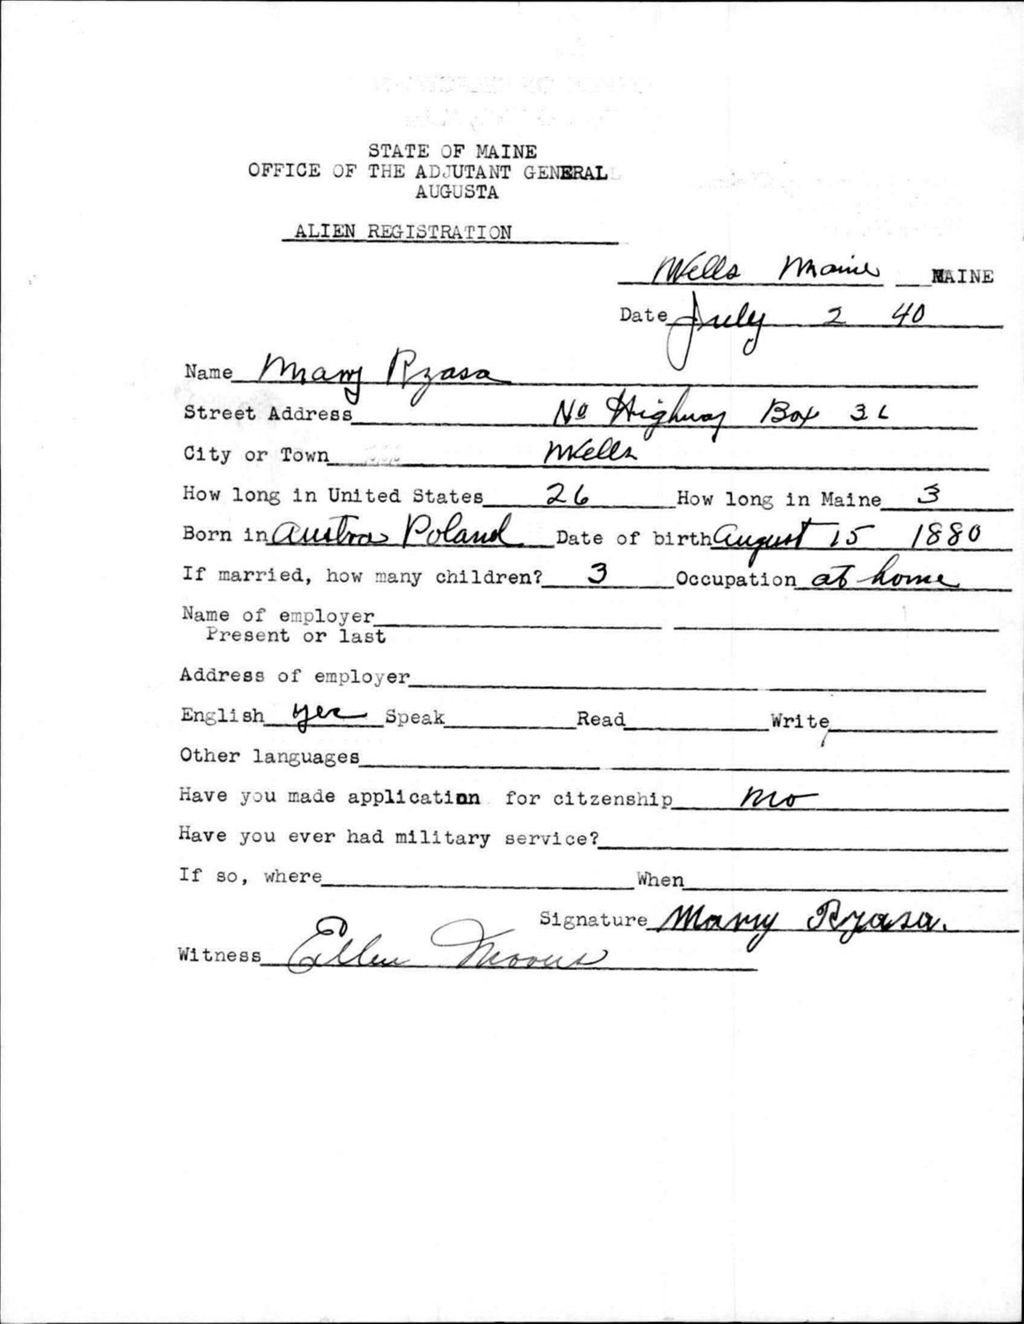 STATE OF MAINE
OFFICE OF THE ADJUTANT GENERAL
AUGUSTA
ALIEN REGISTRATION
Wells Maine MAINE
Date July 2 40
Name Mary Rzasa
Street Address No Highway Box 36
City or Town Wells
How long in United States 26 How long in Maine 3
Born in Austra Poland Date of birth August 15 1880
If married, how many children? 3 Occupation at home
Name of employer
Present or last
Address of employer
English yes Speak Read Write
Other languages
Have you made application for citzenship no
Have you ever had military service?
If so, where When
Signature Mary Rzasa.
Witness Ellen